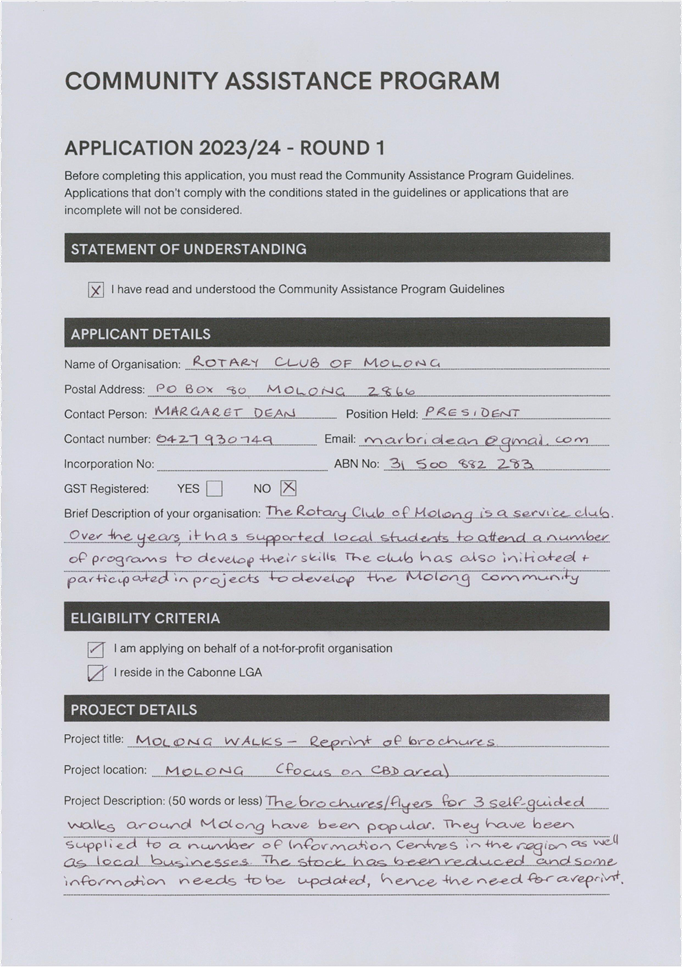 COMMUNITY ASSISTANCE PROGRAM
APPLICATION 2023/24 - ROUND 1
Before completing this application, you must read the Community Assistance Program Guidelines.
Applications that don't comply with the conditions stated in the guidelines or applications that are
incomplete will not be considered.
STATEMENT OF UNDERSTANDING
I have read and understood the Community Assistance Program Guidelines
APPLICANT DETAILS
Name of Organisation: ROTARY CLUB OF MOLONG
Postal Address: PO BOX 80 MOLONG 2866
Contact Person: MARGARET DEAN Position Held: PRESIDENT
Contact number: 0427930749 Email: marbridean@gmal.com
Incorporation No: ABN No: 31 500 882 283
GST Registered: YES NO
Brief Description of your organisation: The Rotary Club of Molong is a service club.
Over the years, it has supported local students to attend a number
of programs to develop their skills The club has also initiated +
participated in projects to develop the Molong community
ELIGIBILITY CRITERIA
I am applying on behalf of a not-for-profit organisation
I reside in the Cabonne LGA
PROJECT DETAILS
Project title: MOLONG WALKS - Reprint of brochures
Project location: MOLONG (focus on CBD area)
Project Description: (50 words or less) The brochures/flyers for 3 self-guided
walks around Molong have been popular. They have been
supplied to a number of Information Centres in the region as well
as local businesses. The stock has been reduced and some
information needs to be updated, hence the need for a reprint.